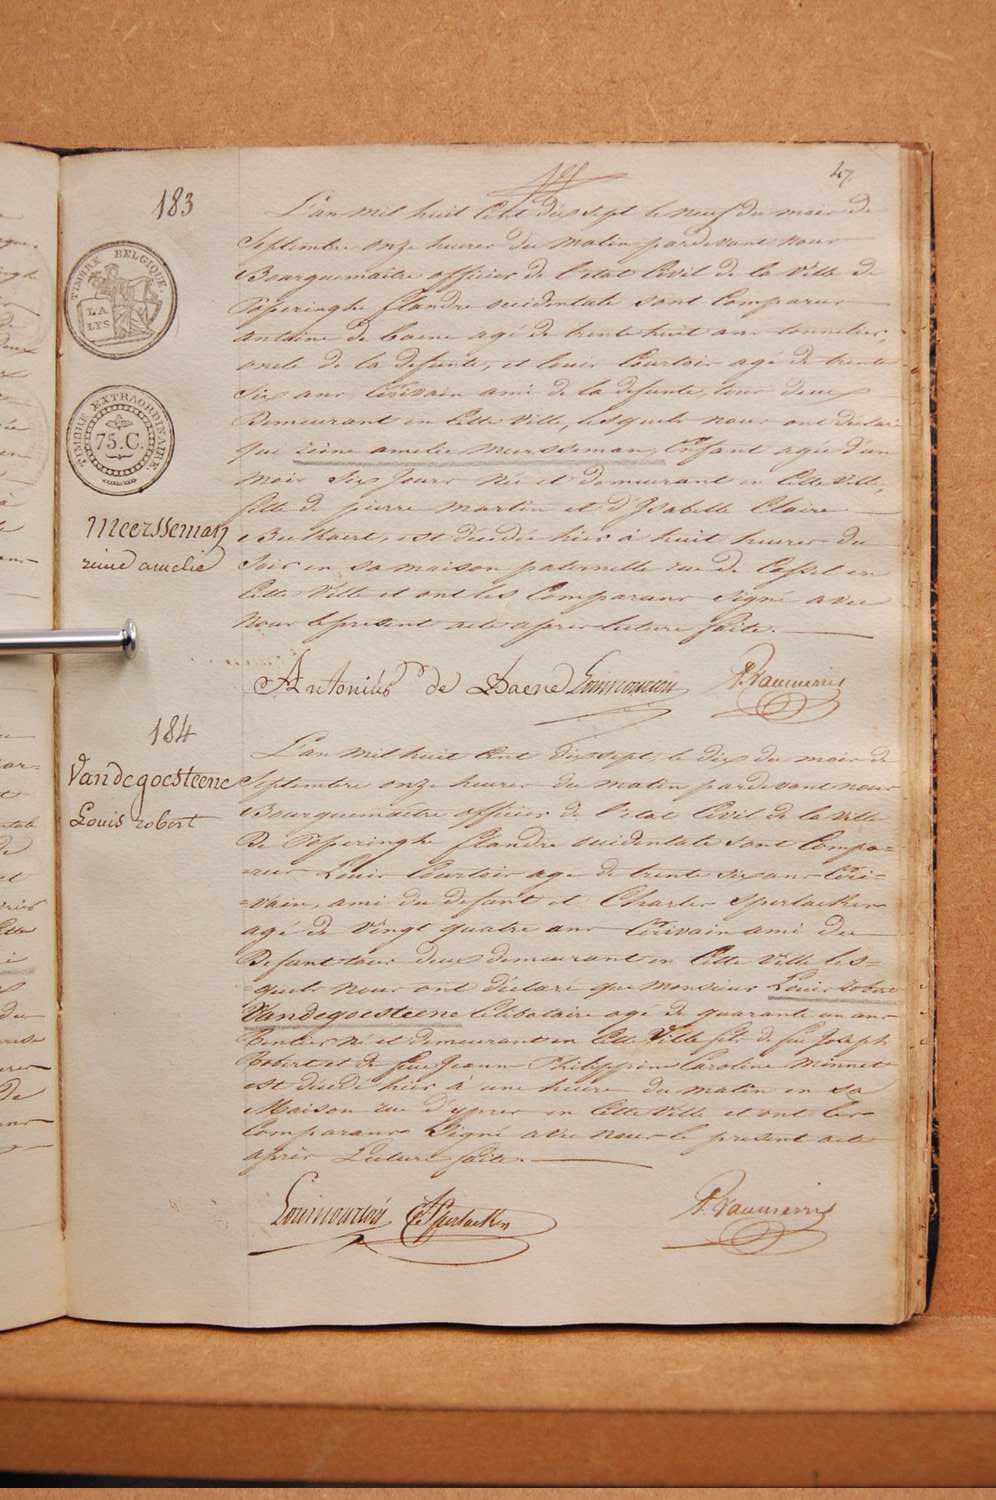 47
183
TIMBRE BELGIQUE
LA LYS
TIMBRE EXTRAORDINAIRE
75.C.
Meersseman
reine amelie
L'an mil huit Cent dix sept le neuf du mois de
Septembre onze heures du matin pardevant nous
Bourguemaitre officier de l'etat Civil de la Ville de
Poperinghe flandre occidentale sont Comparus
antoine de baene agé de trente huit ans tonnelier,
oncle de la defunte, et louis Courtois agé de trente
six ans Ecrivain ami de la defunte, tous deux
Demeurant en Cette Ville, lesquels nous ont déclaré
que reine amelie Meersseman, Enfant agée d'un
mois six Jours née et demeurant en Cette Ville,
fille de pierre martin et d'Isabelle Claire
est décédée hier à huit heures du
Soir en sa maison paternelle rue de Cassel en
Cette Ville et ont les Comparans signé avec
nous le present acte apres lecture faite.
Antonius de Baene Louis Courtois
184
Vandegoesteene
Louis robert
L'an mil huit Cent dix sept, le dix du mois de
Septembre onze heures du matin pardevant nous
Bourguemaitre officier de l'etat Civil de la Ville
De Poperinghe flandre occidentale sont Compa=
=rus Louis Courtois agé de trente six ans Ecri=
=vain, ami du defunt et Charles Sperlaeken
agé de vingt quatre ans Ecrivain ami du
Defunt tous deux demeurant en Cette Ville les=
=quels nous ont déclaré que monsieur Louis robert
Vandegoesteene Celibataire agé de quarante un ans
Rentier né et demeurant en Cette Ville fils de feu Joseph
Robert et de feue Jeanne Philippine Caroline Minnet
est décédé hier à une heure du matin en sa
Maison rue d'ypres en Cette Ville et ont les
Comparans Signé avec nous le present acte
après Lecture faite.
Louis Courtois C Sperlaeken